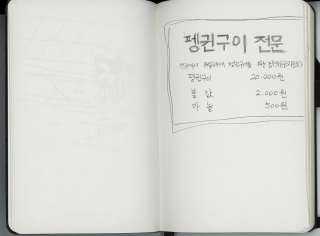 펭귄구이 전문
펭귄구이 20.000원
불 값 2.000원
마 늘 500원